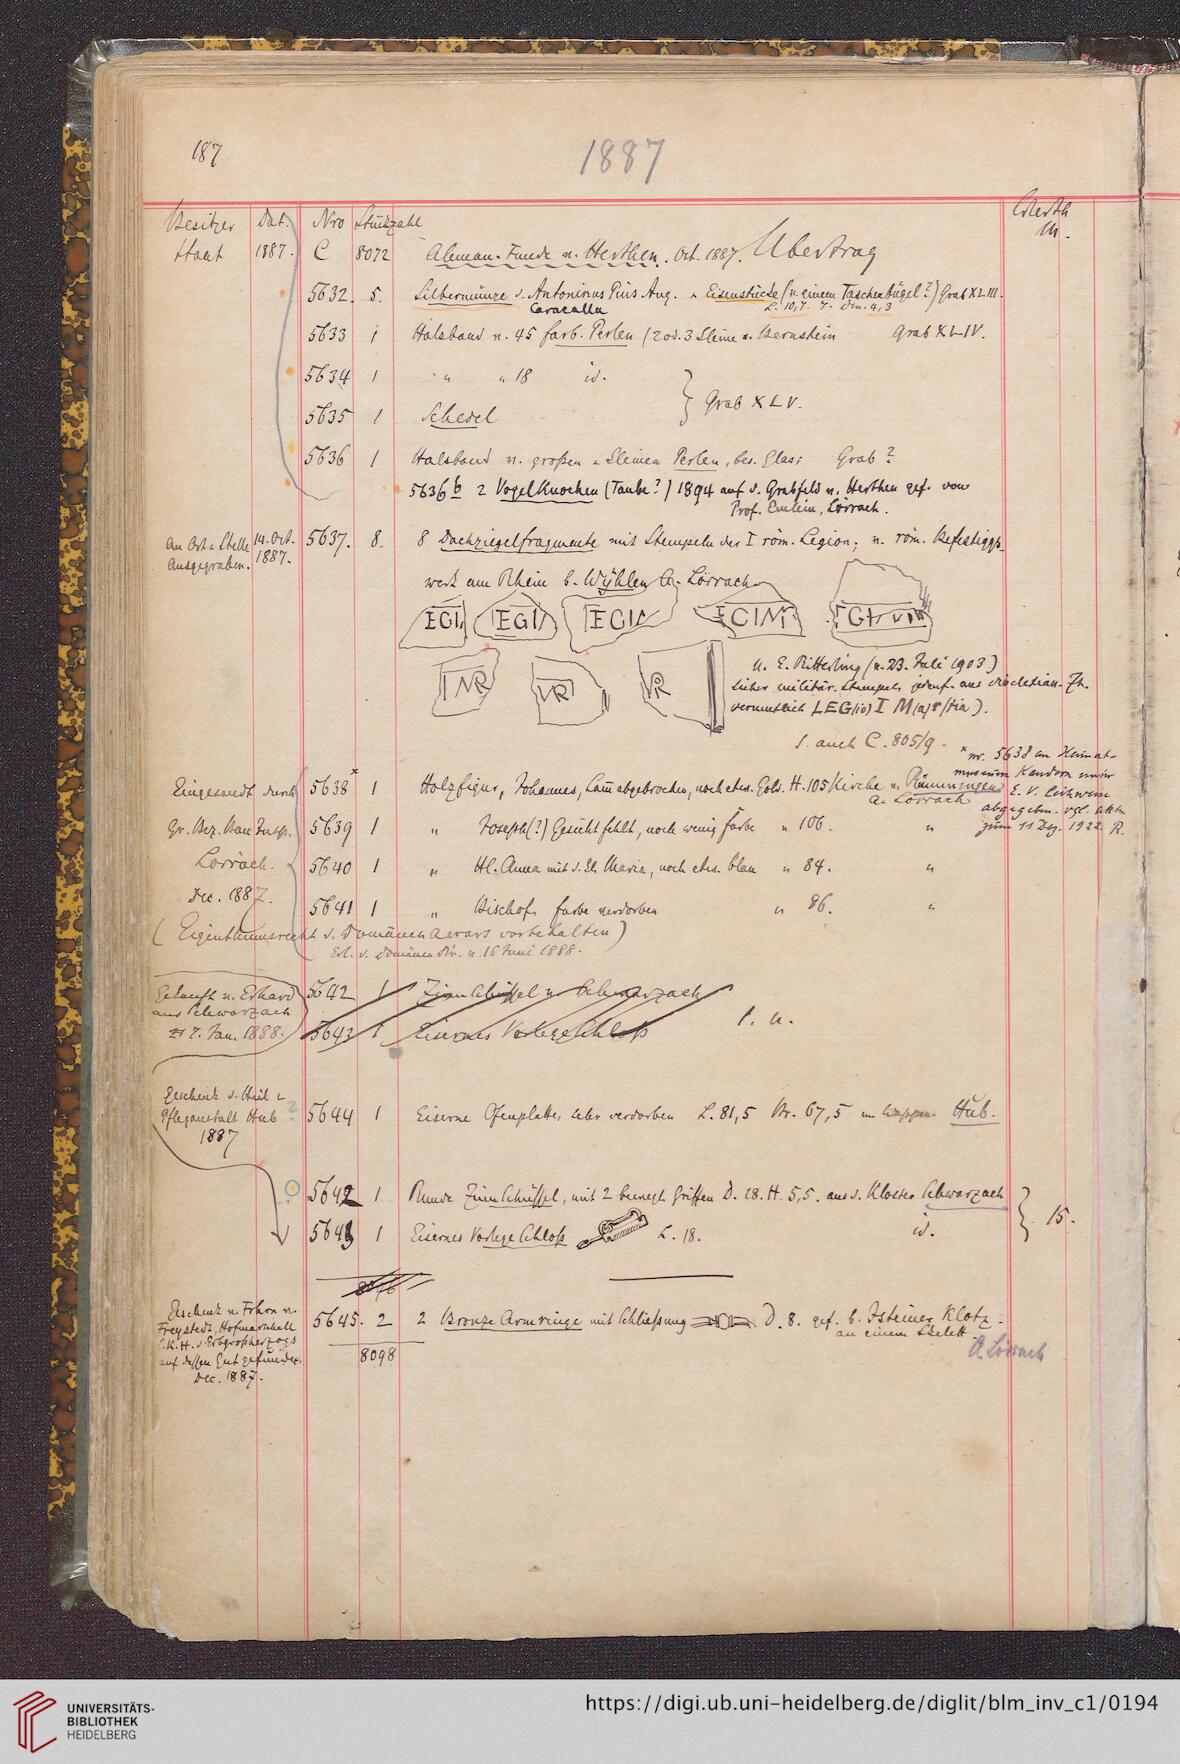 187
1887
Besitzer Dat. Nro Stückzahl Werth M.
Staat 1887. C 8072 Aleman. Funde v. Herthen. Oct. 1887. Übertrag
5632. 5. Silbermünze v. Antoninus Pius Aug. u. Eisenstücke (v. einem Taschenbügel?) Grab XLIII.
Caracalla L. 10,7. 7. Dm. 4,3
5633 1 Halsband v. 45 farb. Perlen (2 od. 3 Steine u. Bernstein Grab XLIV.
5634 1 " " 18 id.
} Grab XLV.
5635 1 Schedel
5636 1 Halsband v. großen u. kleinen Perlen, bes. Glas; Grab?
5636 b 2 Vogelknochen (Taube?) 1894 auf d. Grabfeld v. Herthen gef. von
Prof. Emlein, Lörrach.
An Ort u. Stelle ausgegraben. 14. Oct. 1887. 5637. 8. 8 Dachziegelfragmente mit Stempeln der I röm. Legion; v. röm. Befestiggs-
werk am Rhein b. Wyhlen A. Lörrach
LEGI LEGI LEGIA LEGIM LEGI
MR VR VR
N. E. Ritterling (v. 23. Juli 1903)
sicher militär. Stempel, jedenf. aus diocletian. Zt.
vermutlich LEG(io) I M(a)r(tia).
s. auch C. 805/9.
Eingesandt durch Gr. Bez. Bau Insp. Lörrach. Dec. 1887.
5638 x 1 Holzfigur, Johannes, Lam abgebrochen, noch etw. Gold. H. 105 Kirche v. Rümmingen
A. Lörrach
x nr. 5638 an Heimat-
museum Kandern unter
E. V. leihweise
abgegeben. vgl. Akten
zum 11 Dez. 1922. R.
5639 1 " Joseph(?) Gesicht fehlt, noch wenig Farbe " 106. "
5640 1 " Hl. Anna mit d. Hl. Maria, noch etw. blau " 84. "
5641 1 " Bischof, Farbe verdorben " 86. "
(Eigenthumsrecht d. Domänenaerars vorbehalten)
Erl. d. Domänendir. v. 16 Juni 1888.
Gekauft v. Erhard
aus Schwarzach
7. Jan. 1888.
5642 1 Zinnschüssel v. Schwarzach
5643 1 Eisernes Vorlegeschloß s. u.
Geschenk d. Heil u.
Pfleganstalt Hub
1887
5644 1 Eiserne Ofenplatte, sehr verdorben L. 81,5 Br. 67,5 m. Wappen Hub.
5642 1 Runde Zinnschüssel, mit 2 bewegl. Griffen D. 28. H. 5,5. aus d. Kloster Schwarzach
5643 1 Eisernes Vorlegeschloß L. 18. id.
} 15.
Geschenk v. Frhrn v.
Freystedt, Hofmarschall
S. K. H. d. Erbgroßherzogs
auf dessen Gut gefunden.
Dec. 1887.
5645. 2 2 Bronze Armringe mit Schließung D. 8. gef. b. Isteiner Klotz.
an einem Skelett.
A. Lörrach
8098
UNIVERSITÄTS-
BIBLIOTHEK
HEIDELBERG
https://digi.ub.uni-heidelberg.de/diglit/blm_inv_c1/0194